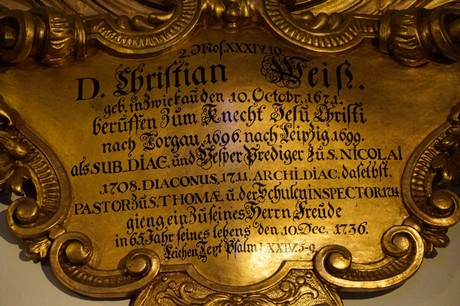 2 Mos. XXXIV. 10.
D. Christian Weiß.
geb. in Zwickau den 10. Octobr. 1671.
beruffen zum Knecht Jesu Christi
nach Torgau 1696. nach Leipzig 1699.
als SUB DIAC. und Vesper Prediger zu S. NICOLAI
1708. DIACONUS, 1711. ARCHI DIAC. daselbst.
PASTOR zu S. THOMÆ u. der Schulen INSPECTOR 1714
gieng ein zu seines Herrn Freude
in 65 Jahr seines lebens den 10 Dec. 1736.
Leichen Text Psalm LXXIV. 5-9.